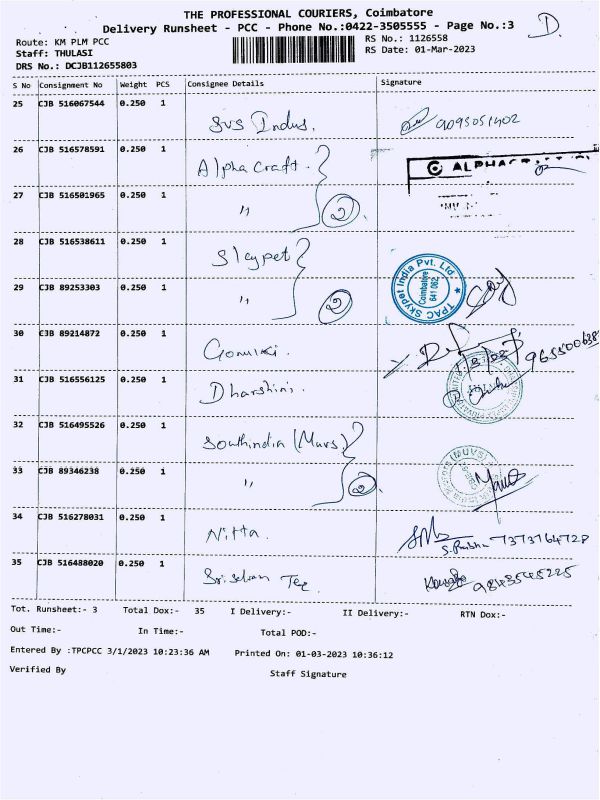 THE PROFESSIONAL COURIERS, Coimbatore
Delivery Runsheet - PCC - Phone No.:0422-3505555 - Page No.:3
D.
Route: KM PLM PCC
RS No.: 1126558
Staff: THULASI
RS Date: 01-Mar-2023
DRS No.: DCJB112655803
S No Consignment No Weight PCS Consignee Details Signature
25 CJB 516067544 0.250 1
Svs Indus. 9095051402
26 CJB 516578591 0.250 1
Alpha Craft. ALPHACR
27 CJB 516501965 0.250 1
" 2
28 CJB 516538611 0.250 1
Skypet
29 CJB 89253303 0.250 1
" 2
TPAC Skypet India Pvt. Ltd. ★
Coimbatore
641 062.
30 CJB 89214872 0.250 1
31 CJB 516556125 0.250 1
Dharshini.
32 CJB 516495526 0.250 1
Southindia (Muvs)
33 CJB 89346238 0.250 1
" 2
(MUVS)
34 CJB 516278031 0.250 1
Nitta. 7373764728
35 CJB 516488020 0.250 1
Tot. Runsheet:- 3 Total Dox:- 35 I Delivery:- II Delivery:- RTN Dox:-
Out Time:- In Time:- Total POD:-
Entered By :TPCPCC 3/1/2023 10:23:36 AM Printed On: 01-03-2023 10:36:12
Verified By Staff Signature